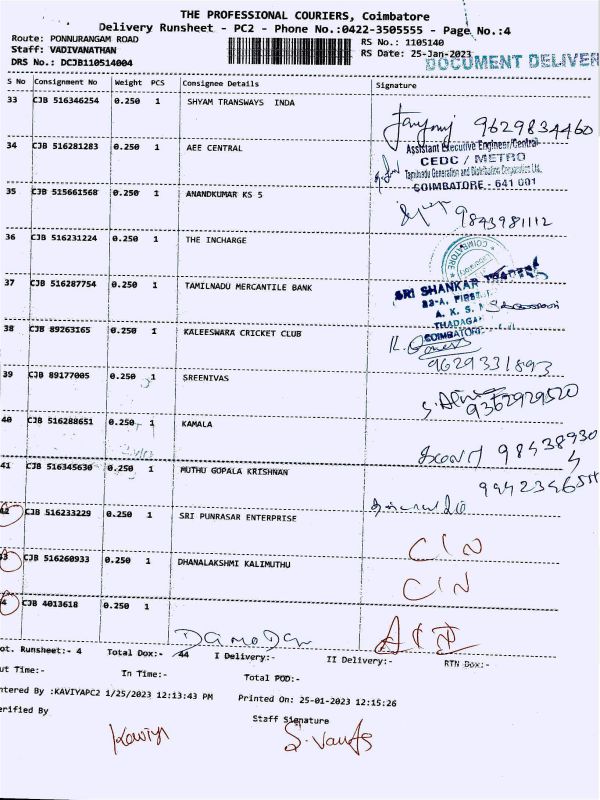 THE PROFESSIONAL COURIERS, Coimbatore
Delivery Runsheet - PC2 - Phone No.:0422-3505555 - Page No.:4
Route: PONNURANGAM ROAD
RS No.: 1105140
Staff: VADIVANATHAN
RS Date: 25-Jan-2023
DRS No.: DCJB110514004
DOCUMENT DELIVER
S No Consignment No Weight PCS Consignee Details Signature
33 CJB 516346254 0.250 1 SHYAM TRANSWAYS INDA
9629834460
34 CJB 516281283 0.250 1 AEE CENTRAL
Assistant Executive Engineer/Central
CEDC / METRO
Tamilnadu Generation and Distribution Corporation Ltd.
COIMBATORE - 641 001
35 CJB 515661568 0.250 1 ANANDKUMAR KS 5
9843981112
36 CJB 516231224 0.250 1 THE INCHARGE
COIMBATORE
37 CJB 516287754 0.250 1 TAMILNADU MERCANTILE BANK
SRI SHANKAR
23-A, FIRST
A. K. S.
THADAGA
COIMBATORE
38 CJB 89263165 0.250 1 KALEESWARA CRICKET CLUB
9629331893
39 CJB 89177005 0.250 1 SREENIVAS
9362929520
40 CJB 516288651 0.250 1 KAMALA
98438930
41 CJB 516345630 0.250 1 MUTHU GOPALA KRISHNAN
42 CJB 516233229 0.250 1 SRI PUNRASAR ENTERPRISE
CIN
43 CJB 516260933 0.250 1 DHANALAKSHMI KALIMUTHU
CIN
4 CJB 4013618 0.250 1
DAMODAR
ot. Runsheet:- 4 Total Dox:- 44 I Delivery:- II Delivery:- RTN Dox:-
ut Time:- In Time:- Total POD:-
ntered By :KAVIYAPC2 1/25/2023 12:13:43 PM Printed On: 25-01-2023 12:15:26
erified By Staff Signature
Kaviya